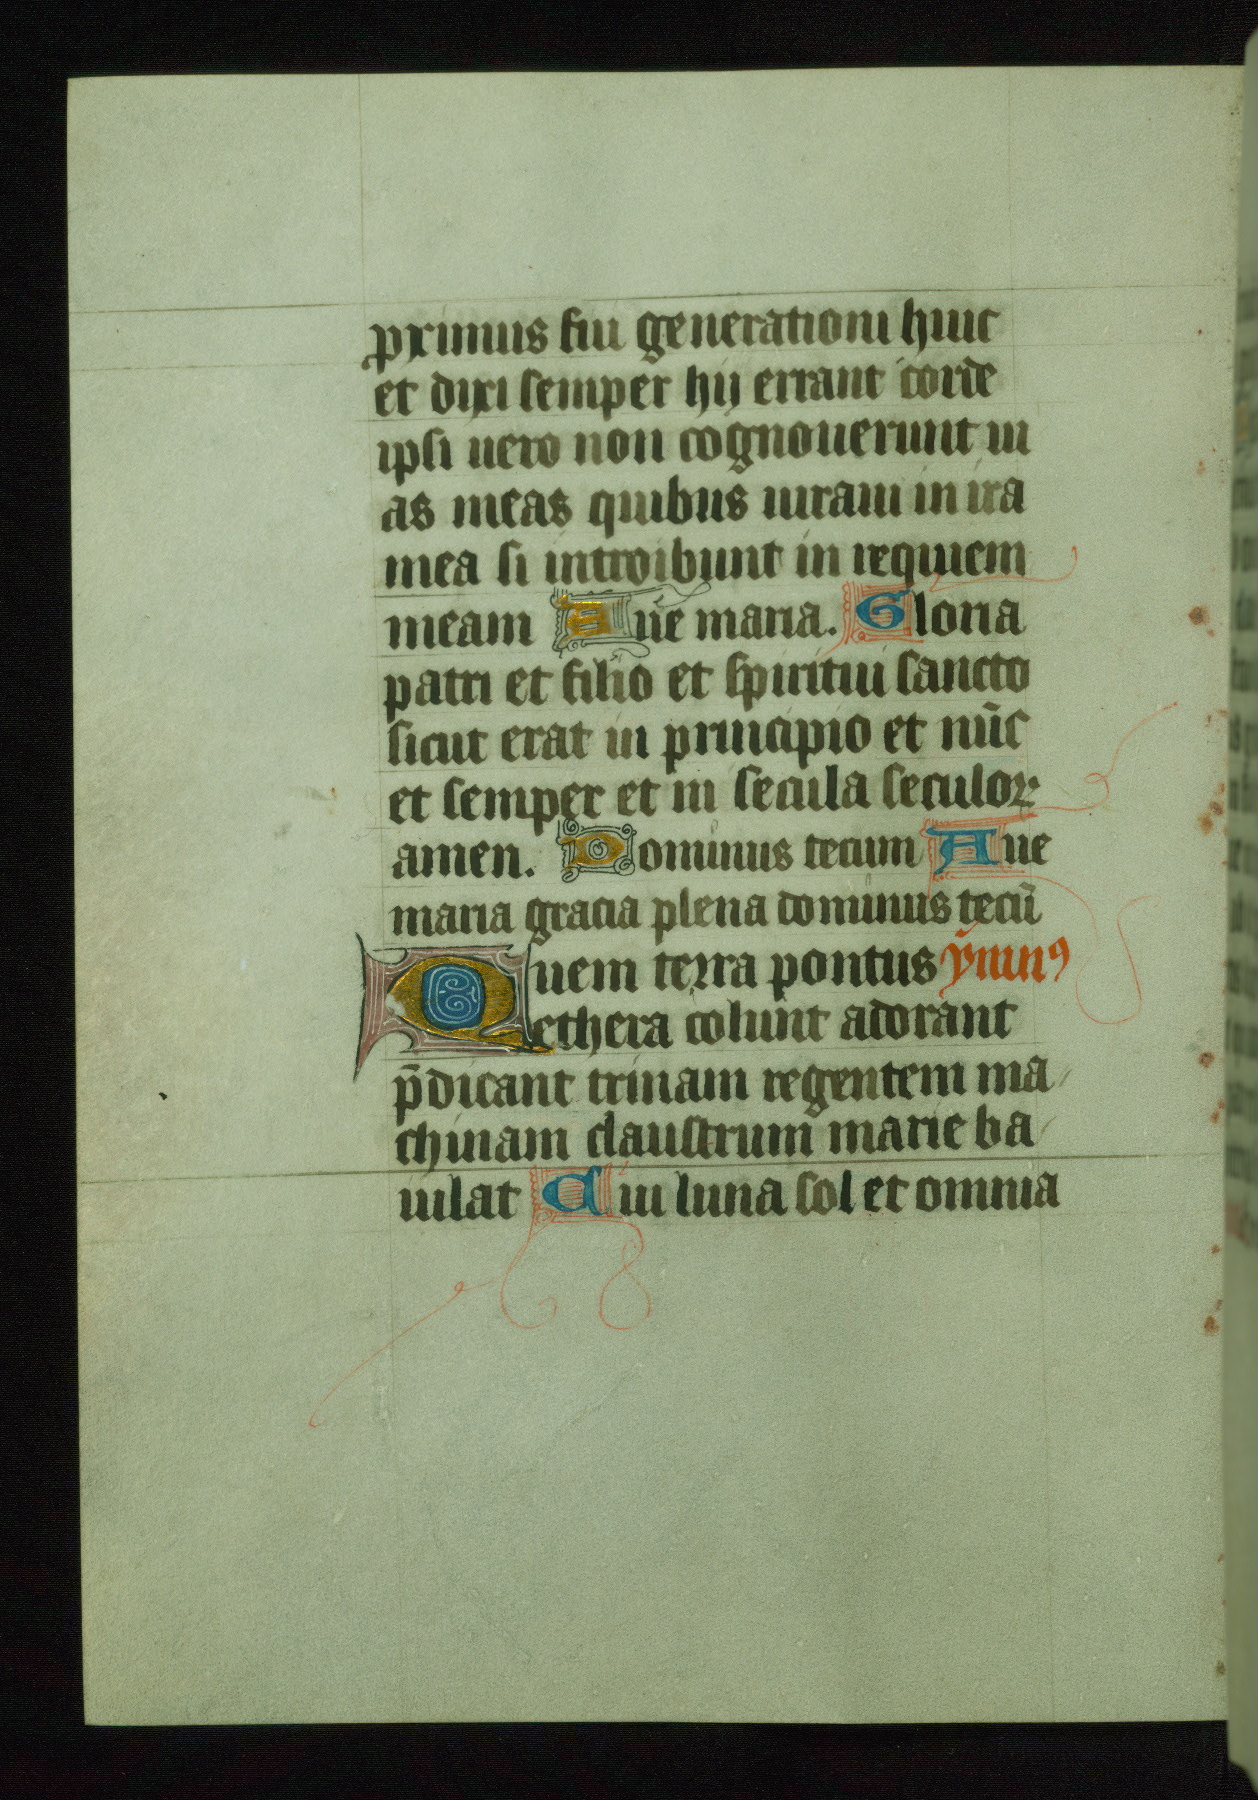 ꝓximus fui generationi huic
et dixi semper hij errant corde
ipsi uero non cognouerunt ui
as meas quibus iuraui in ira
mea si introibunt in requiem
meam Aue maria. Gloria
patri et filio et spiritui sancto
sicut erat in principio et nūc
et semper et in secula seculoꝝ
amen. Dominus tecum Aue
maria gracia plena dominus tecū
Quem terra pontus ẏmnꝰ
ethera colunt adorant
p̄dicant trinam regentem ma
chinam claustrum marie ba
iulat Cui luna sol et omnia